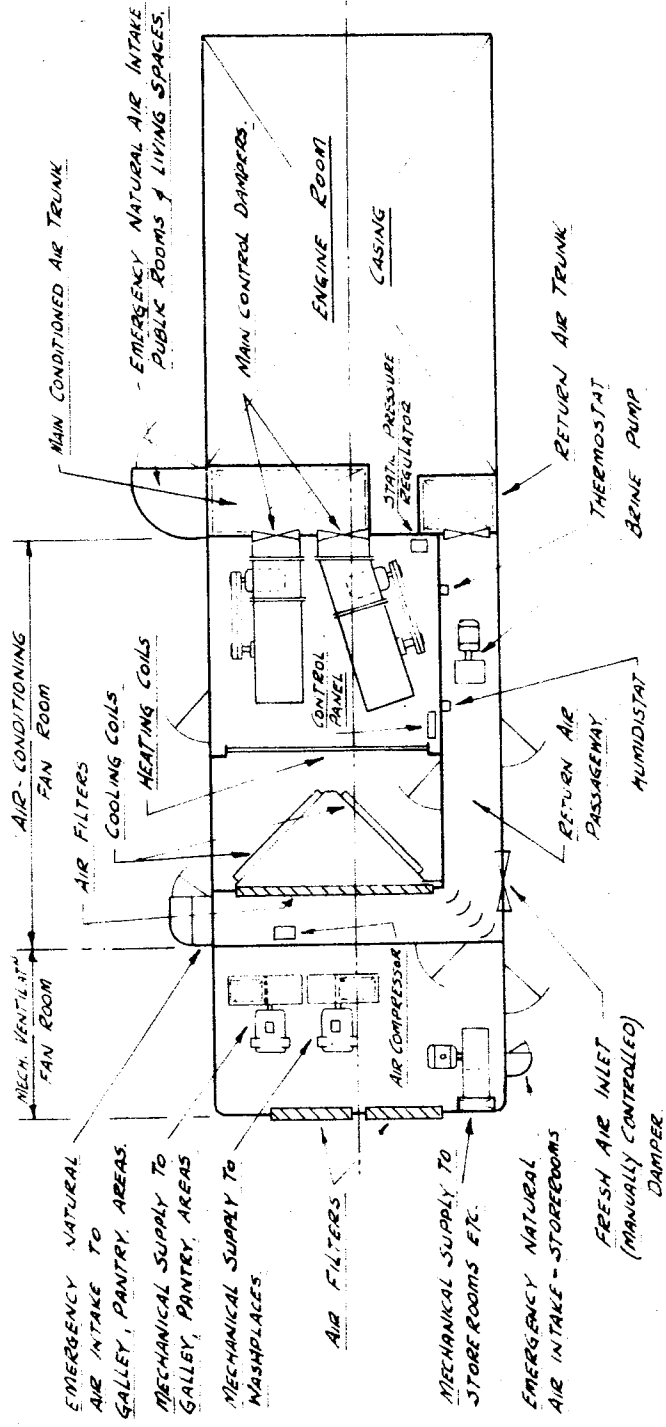 MECH. VENTILATᴺ
FAN ROOM
AIR-CONDITIONING
FAN ROOM
AIR FILTERS
COOLING COILS
HEATING COILS
MAIN CONDITIONED AIR TRUNK
EMERGENCY NATURAL AIR INTAKE
PUBLIC ROOMS & LIVING SPACES.
MAIN CONTROL DAMPERS.
ENGINE ROOM
CASING
STATIC PRESSURE
REGULATOR
CONTROL
PANEL
AIR COMPRESSOR
EMERGENCY NATURAL
AIR INTAKE TO
GALLEY, PANTRY, AREAS.
MECHANICAL SUPPLY TO
GALLEY, PANTRY, AREAS
MECHANICAL SUPPLY TO
WASHPLACES
AIR FILTERS
MECHANICAL SUPPLY TO
STOREROOMS ETC.
EMERGENCY NATURAL
AIR INTAKE - STOREROOMS
FRESH AIR INLET
(MANUALLY CONTROLLED)
DAMPER
RETURN AIR
PASSAGEWAY
HUMIDISTAT
BRINE PUMP
THERMOSTAT
RETURN AIR TRUNK